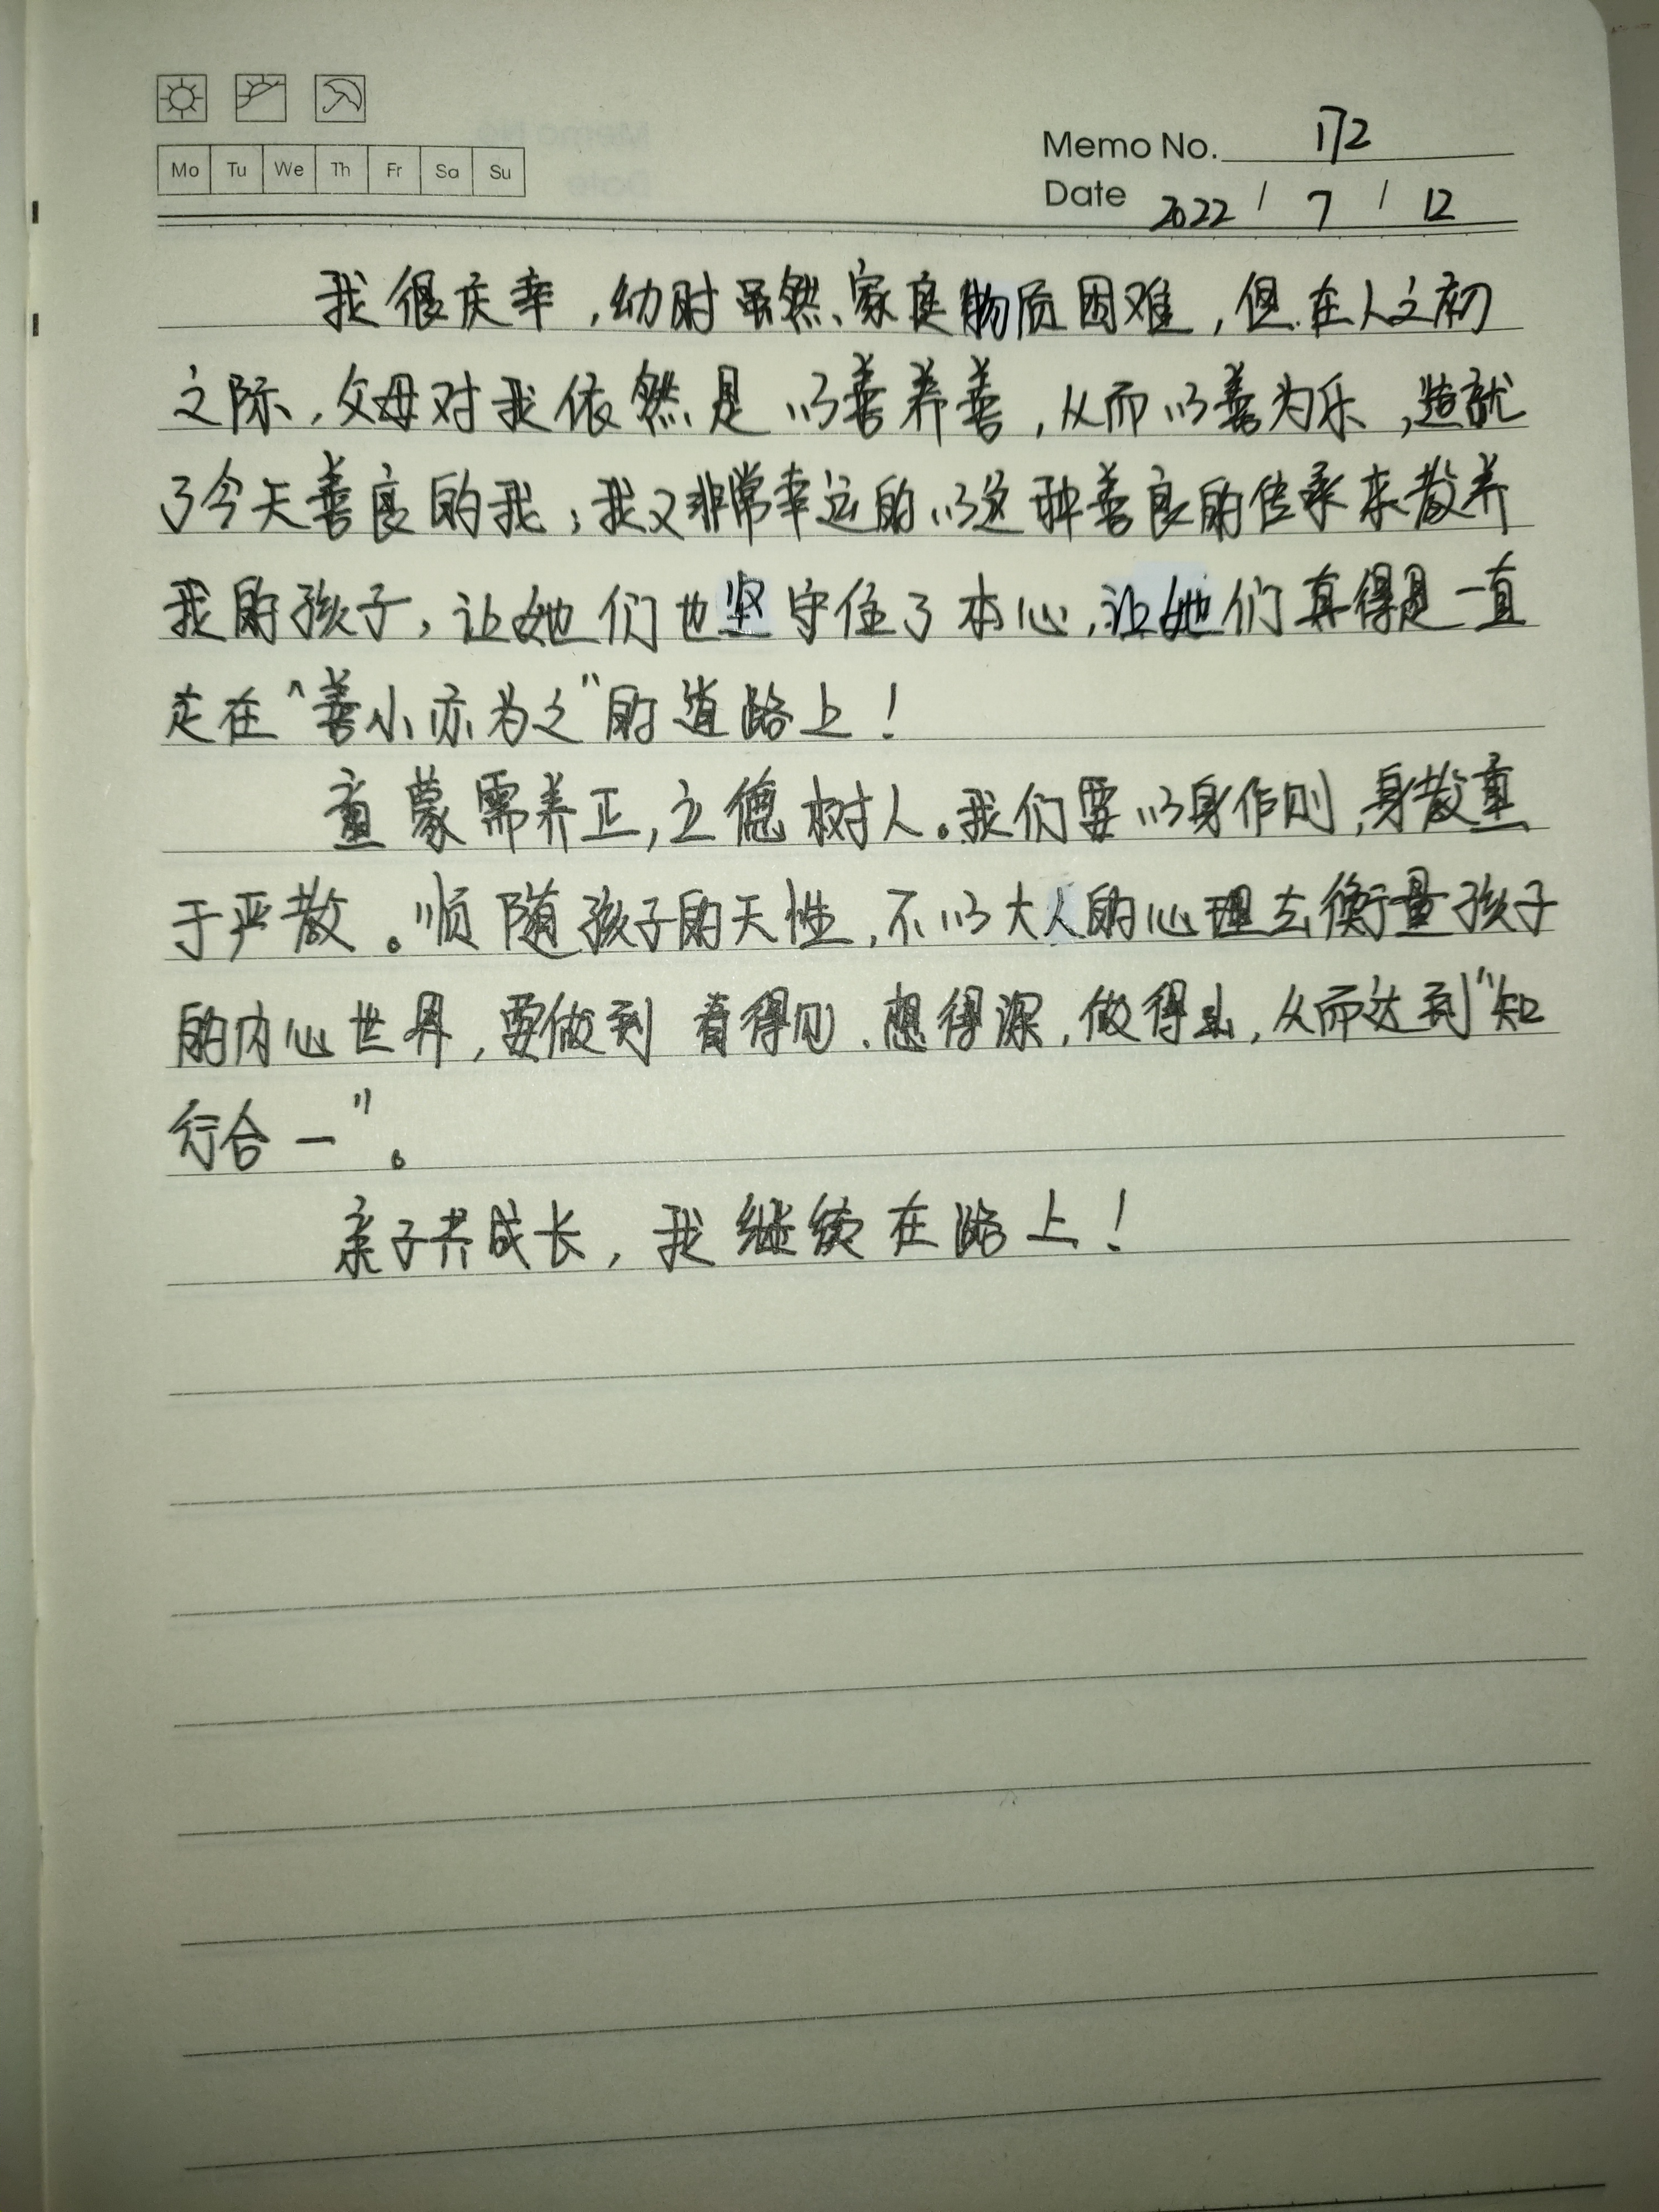 Mo Tu We Th Fr Sa Su
Memo No. 172
Date 2022 / 7 / 12
我很庆幸,幼时虽然家庭物质困难,但在人之初
之际,父母对我依然是以善养善,从而以善为乐,造就
了今天善良的我;我又非常幸运的以这种善良的传承来教养
我的孩子,让她们也坚守住了本心,让她们真得是一直
走在“善小亦为之”的道路上!
童蒙需养正,立德树人。我们要以身作则,身教重
于严教。顺随孩子的天性,不以大人的心理去衡量孩子
的内心世界,要做到看得见、想得深,做得出,从而达到“知
行合一”。
亲子共成长,我继续在路上!